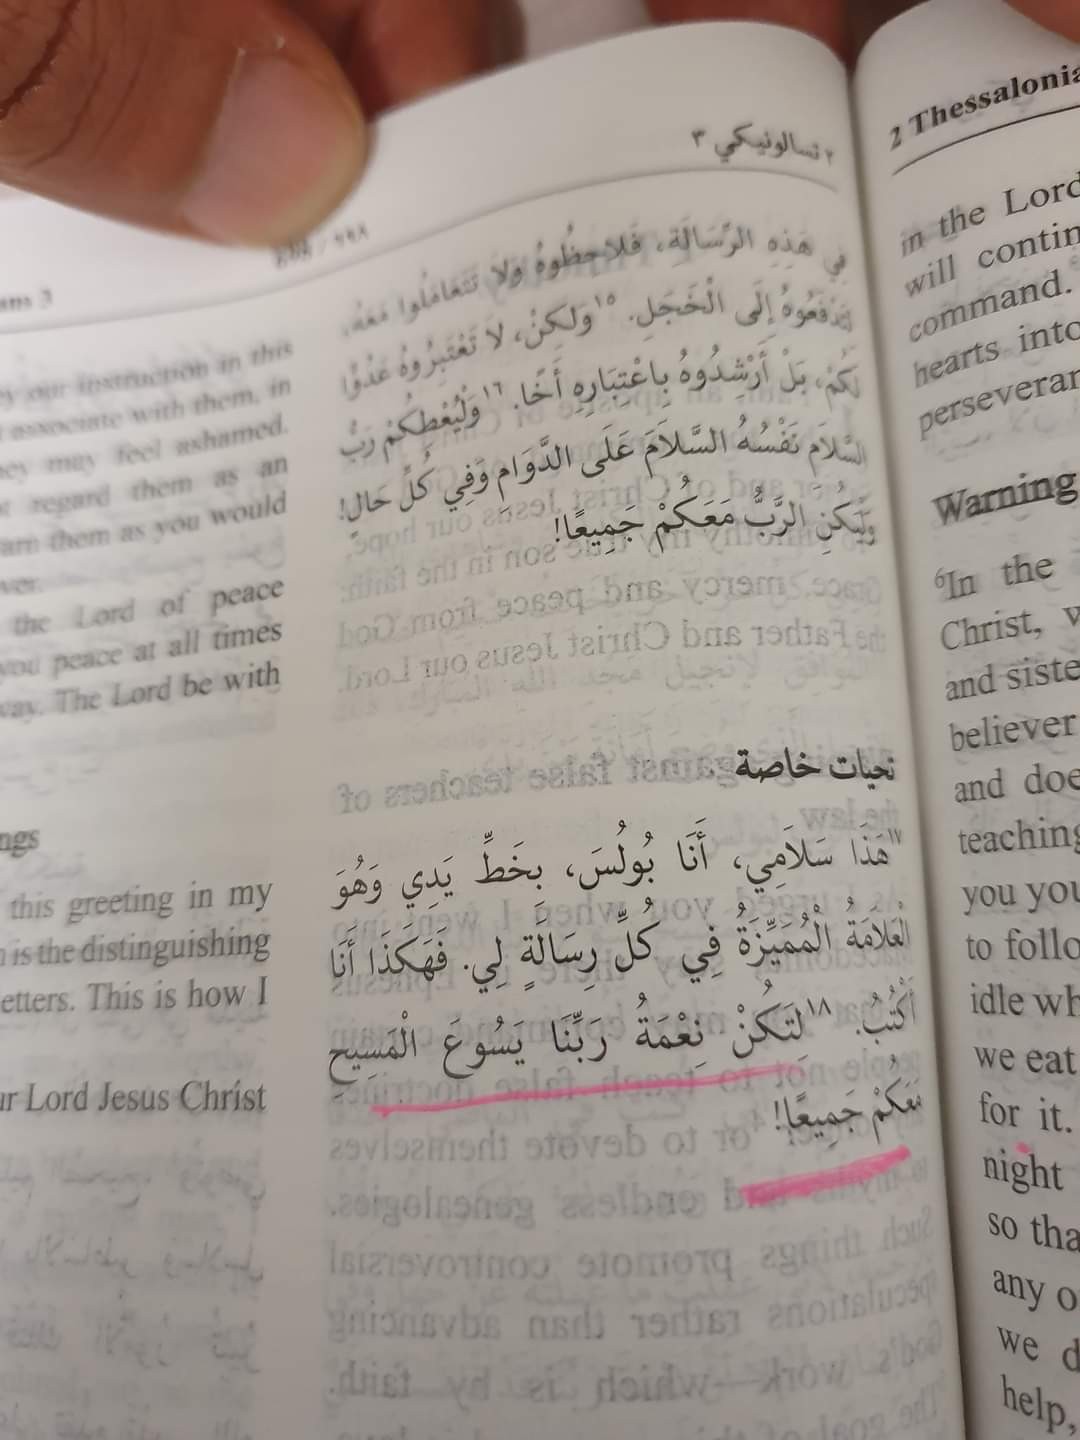 ans 3
٦٩٨ / 698
٢ تسالونيكي ٣
our instruction in this
associate with them, in
they may feel ashamed.
regard them as an
warn them as you would
the Lord of peace
you peace at all times
way. The Lord be with
ngs
this greeting in my
is the distinguishing
etters. This is how I
ur Lord Jesus Christ
فِي هَذِهِ الرِّسَالَةِ، فَلاحِظُوهُ وَلا تَتَعَامَلُوا مَعَهُ،
لِتَدْفَعُوهُ إِلَى الْخَجَلِ. ١٥وَلكِنْ، لَا تَعْتَبِرُوهُ عَدُوًّا
لَكُمْ، بَلْ أَرْشِدُوهُ بِاعْتِبَارِهِ أَخًا. ١٦وَلْيُعْطِكُمْ رَبُّ
السَّلاَمِ نَفْسُهُ السَّلاَمَ عَلَى الدَّوَامِ وَفِي كُلِّ حَالٍ!
وَلْيَكُنِ الرَّبُّ مَعَكُمْ جَمِيعًا!
تحيات خاصة
١٧هَذَا سَلاَمِي، أَنَا بُولُسَ، بِخَطِّ يَدِي وَهُوَ
الْعَلاَمَةُ الْمُمَيِّزَةُ فِي كُلِّ رِسَالَةٍ لِي. فَهَكَذَا أَنَا
أَكْتُبُ. ١٨لِتَكُنْ نِعْمَةُ رَبِّنَا يَسُوعَ الْمَسِيحِ
مَعَكُمْ جَمِيعًا!
2 Thessalonia
in the Lord
will contin
command.
hearts into
perseveran
Warning
6In the
Christ, w
and siste
believer
and doe
teaching
you you
to follo
idle wh
we eat
for it.
night
so tha
any o
we d
help,